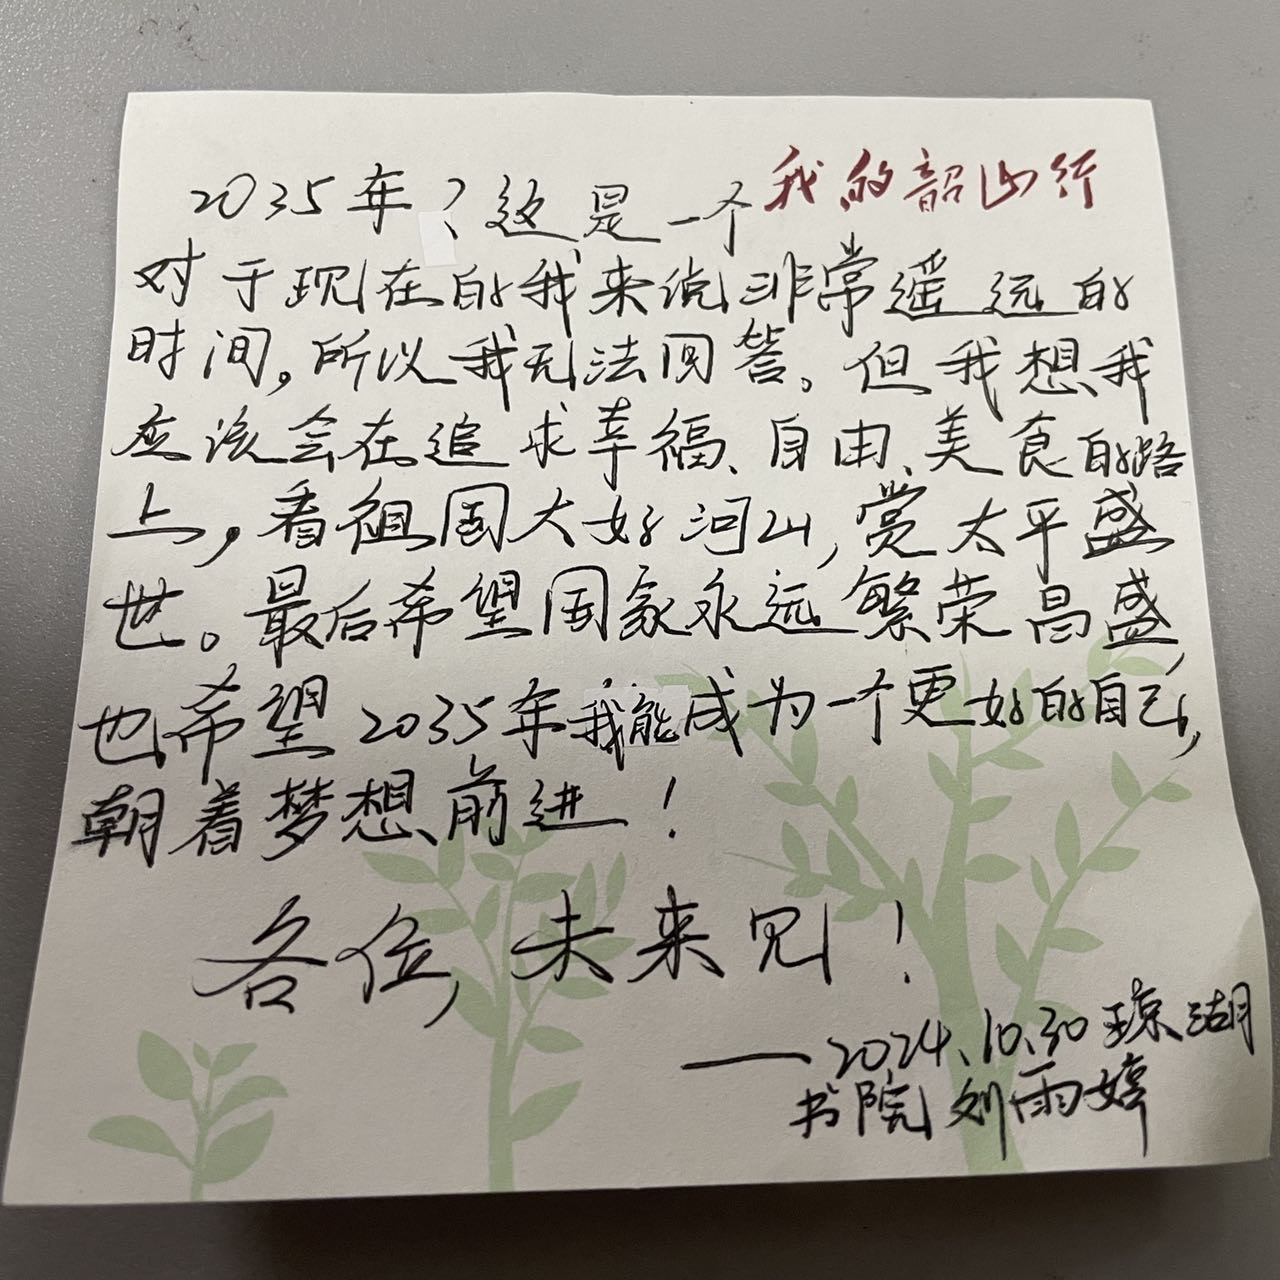 2035年？这是一个 我的韶山行
对于现在的我来说非常遥远的
时间。所以我无法回答。但我想我
应该会在追求幸福、自由、美食的路
上，看祖国大好河山，赏太平盛
世。最后希望国家永远繁荣昌盛，
也希望2035年我能成为一个更好的自己，
朝着梦想前进！
各位，未来见！
——2024.10.30琼湖
书院刘雨婷